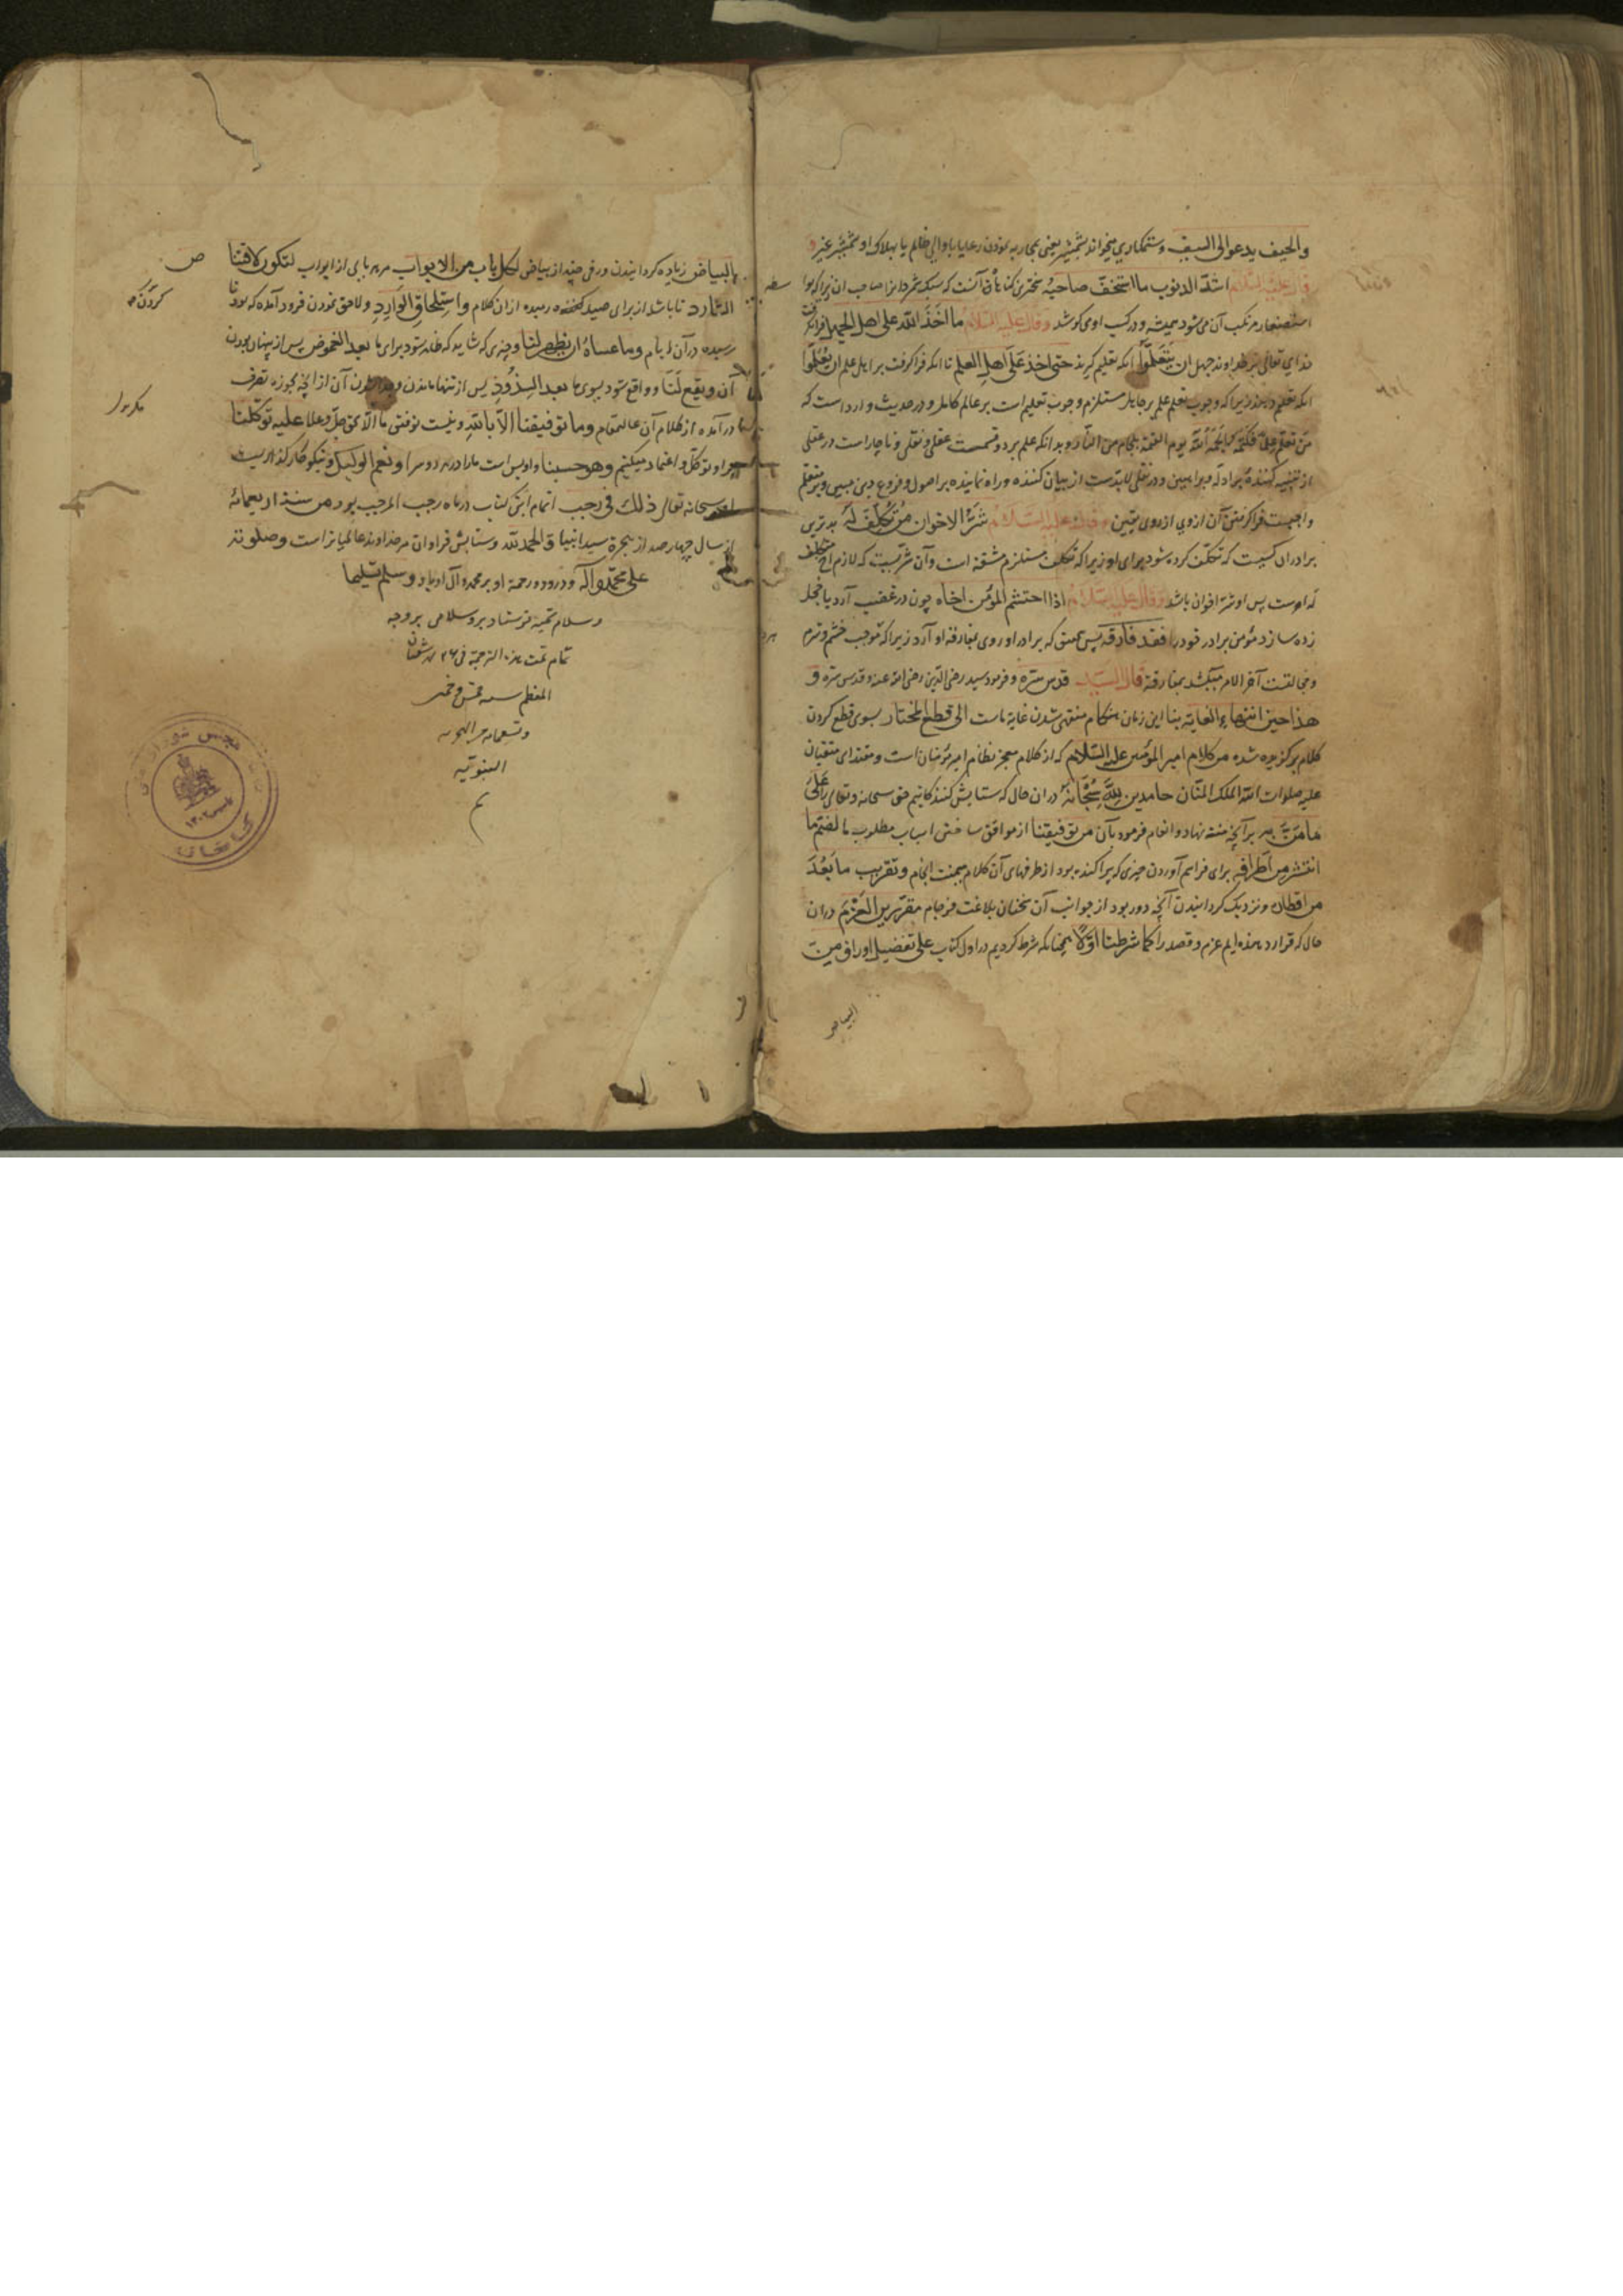 والحیف یدعو الی السیف و ستمکاری میخواند بشمشیر یعنی بمحاربه نمودن رعایا با والی ظالم یا بهلاک او بشمشیر غیر و
قال علیه السلام اشدّ الذنوب ما استخفّ صاحبه سخترین کناهان آنست که سبک شمرد انرا صاحب ان زیرا که بواسطه
استصغار مرتکب آن می‌شود همیشه و در کسب او می‌کوشد وقال علیه السلام ما اخذ الله علی اهل الجهل فرا نکرفت
خدای تعالی بر خداوند جهل ان یتعلّموا آنکه تعلیم کیرند حتی اخذ علی اهل العلم تا انکه فرا کرفت بر اهل علم ان یعلّموا
انکه تعلیم دهند زیرا که وجوب تعلم علم بر جاهل مستلزم وجوب تعلیم است بر عالم کامل و در حدیث وارد است که
من تعلّم علما فکتمه الجمه الله یوم القیمة بلجام من النار و بدانکه علم بر دو قسمست عقلی و نقلی و ناچار است در عقلی
از تنبیه کننده بر ادله و براهین و در نقلی لابدست از بیان کننده و راه نماینده بر اصول و فروع دین مبین و بر متعلم
واجبست فرا کرفتن آن از وی از روی یقین و قال علیه السلام شرّ الاخوان من تکلّف له بدترین
برادران کسیست که تکلّف کرده شود برای او زیرا که تکلف مستلزم مشقة است وآن شرّیست که لازم اخ متکلف
له اوست پس او شرّ اخوان باشد و قال علیه السلام اذا احتشم المؤمن اخاه چون در غضب آرد یا خجل
زده سازد مؤمن برادر خود را فقد فارقه پس بتحقیق که برادر او روی بمفارقه او آرد زیرا که موجب خشم و شرم
و مخالفت آخر الامر میکشد بمفارقة قال السید قدس سره و فرمود سید رضی الدین رضی الله عنه و قدس سره و
هذا حین انتهاء الغایة بنا این زمان هنکام منتهی شدن غایة ماست الی قطع المختار بسوی قطع کردن
کلام برکزیده شده من کلام امیر المؤمنین علیه السلام که از کلام معجز نظام امیر مؤمنان است و مقتدای متقیان
علیه صلوات الله الملک المنّان حامدین لله سبحانه در ان حال که ستایش کنندکانیم حق سبحانه و تعالی را علی
ما منّ به بر آنچه منت نهاد و انعام فرمود بآن من توفیقنا از موافق ساختن اسباب مطلوب ما لضمّ ما
انتشر من اطرافه برای فراهم آوردن چیزی که پراکنده بود از طرفهای آن کلام میمنت انجام و تقریب ما بعد
من اقطاره و نزدیک کردانیدن آنچه دور بود از جوانب آن سخنان بلاغت فرجام مقرّرین العزم در ان
حال که قرار دهنده‌ایم عزم و قصد را کما شرطنا اولا همچنانکه شرط کردیم در اول کتاب علی تفضیل اوراق من
البیاض
البیاض زیاده کردانیدن ورقی چند از بیاض لکل باب من الابواب مر هر بابی از ابواب لتکون لاقتناص
الشارد تا باشد از برای صید کردن رمیده از ان کلام و استلحاق الوارد و لاحق نمودن فرود آمده که بود
رسیده در آن ایام وما عساه ان یظهر لنا و چیزی که شاید که ظاهر شود برای ما بعد الغموض پس از پنهان بودن
آن و یقع لنا و واقع شود بسوی ما بعد الشذوذ پس از تنها ماندن آن از آنچه بحوزه تصرف
در آمده از کلام آن عالیمقام وما توفیقنا الا بالله و نیست توفیق ما الا بحق جلّ وعلا علیه توکلنا
بر او توکل و اعتماد میکنیم وهو حسبنا و او بس است ما را در هر دو سرا و نعم الوکیل و نیکو کارکذاریست
او سبحانه تعالی ذلک فی رجب اتمام این کتاب در ماه رجب المرجب بود من سنة اربعمائة
از سال چهارصد از هجرة سید انبیا والحمد لله و ستایش فراوان مر خداوند عالمیانراست وصلوته
علی محمد وآله و درود و رحمة او بر محمد و آل او باد وسلم تسلیما
و سلام تحیه فرستاد برو سلامی بر وجه
تمام تمت هذه الترجمة فی ۲۶ شهر شعبان
المعظم سنه خمس و خمسین
وتسعمائه من الهجره
النبویه
م
مکر بود
کتابخانه مجلس شورای ملی